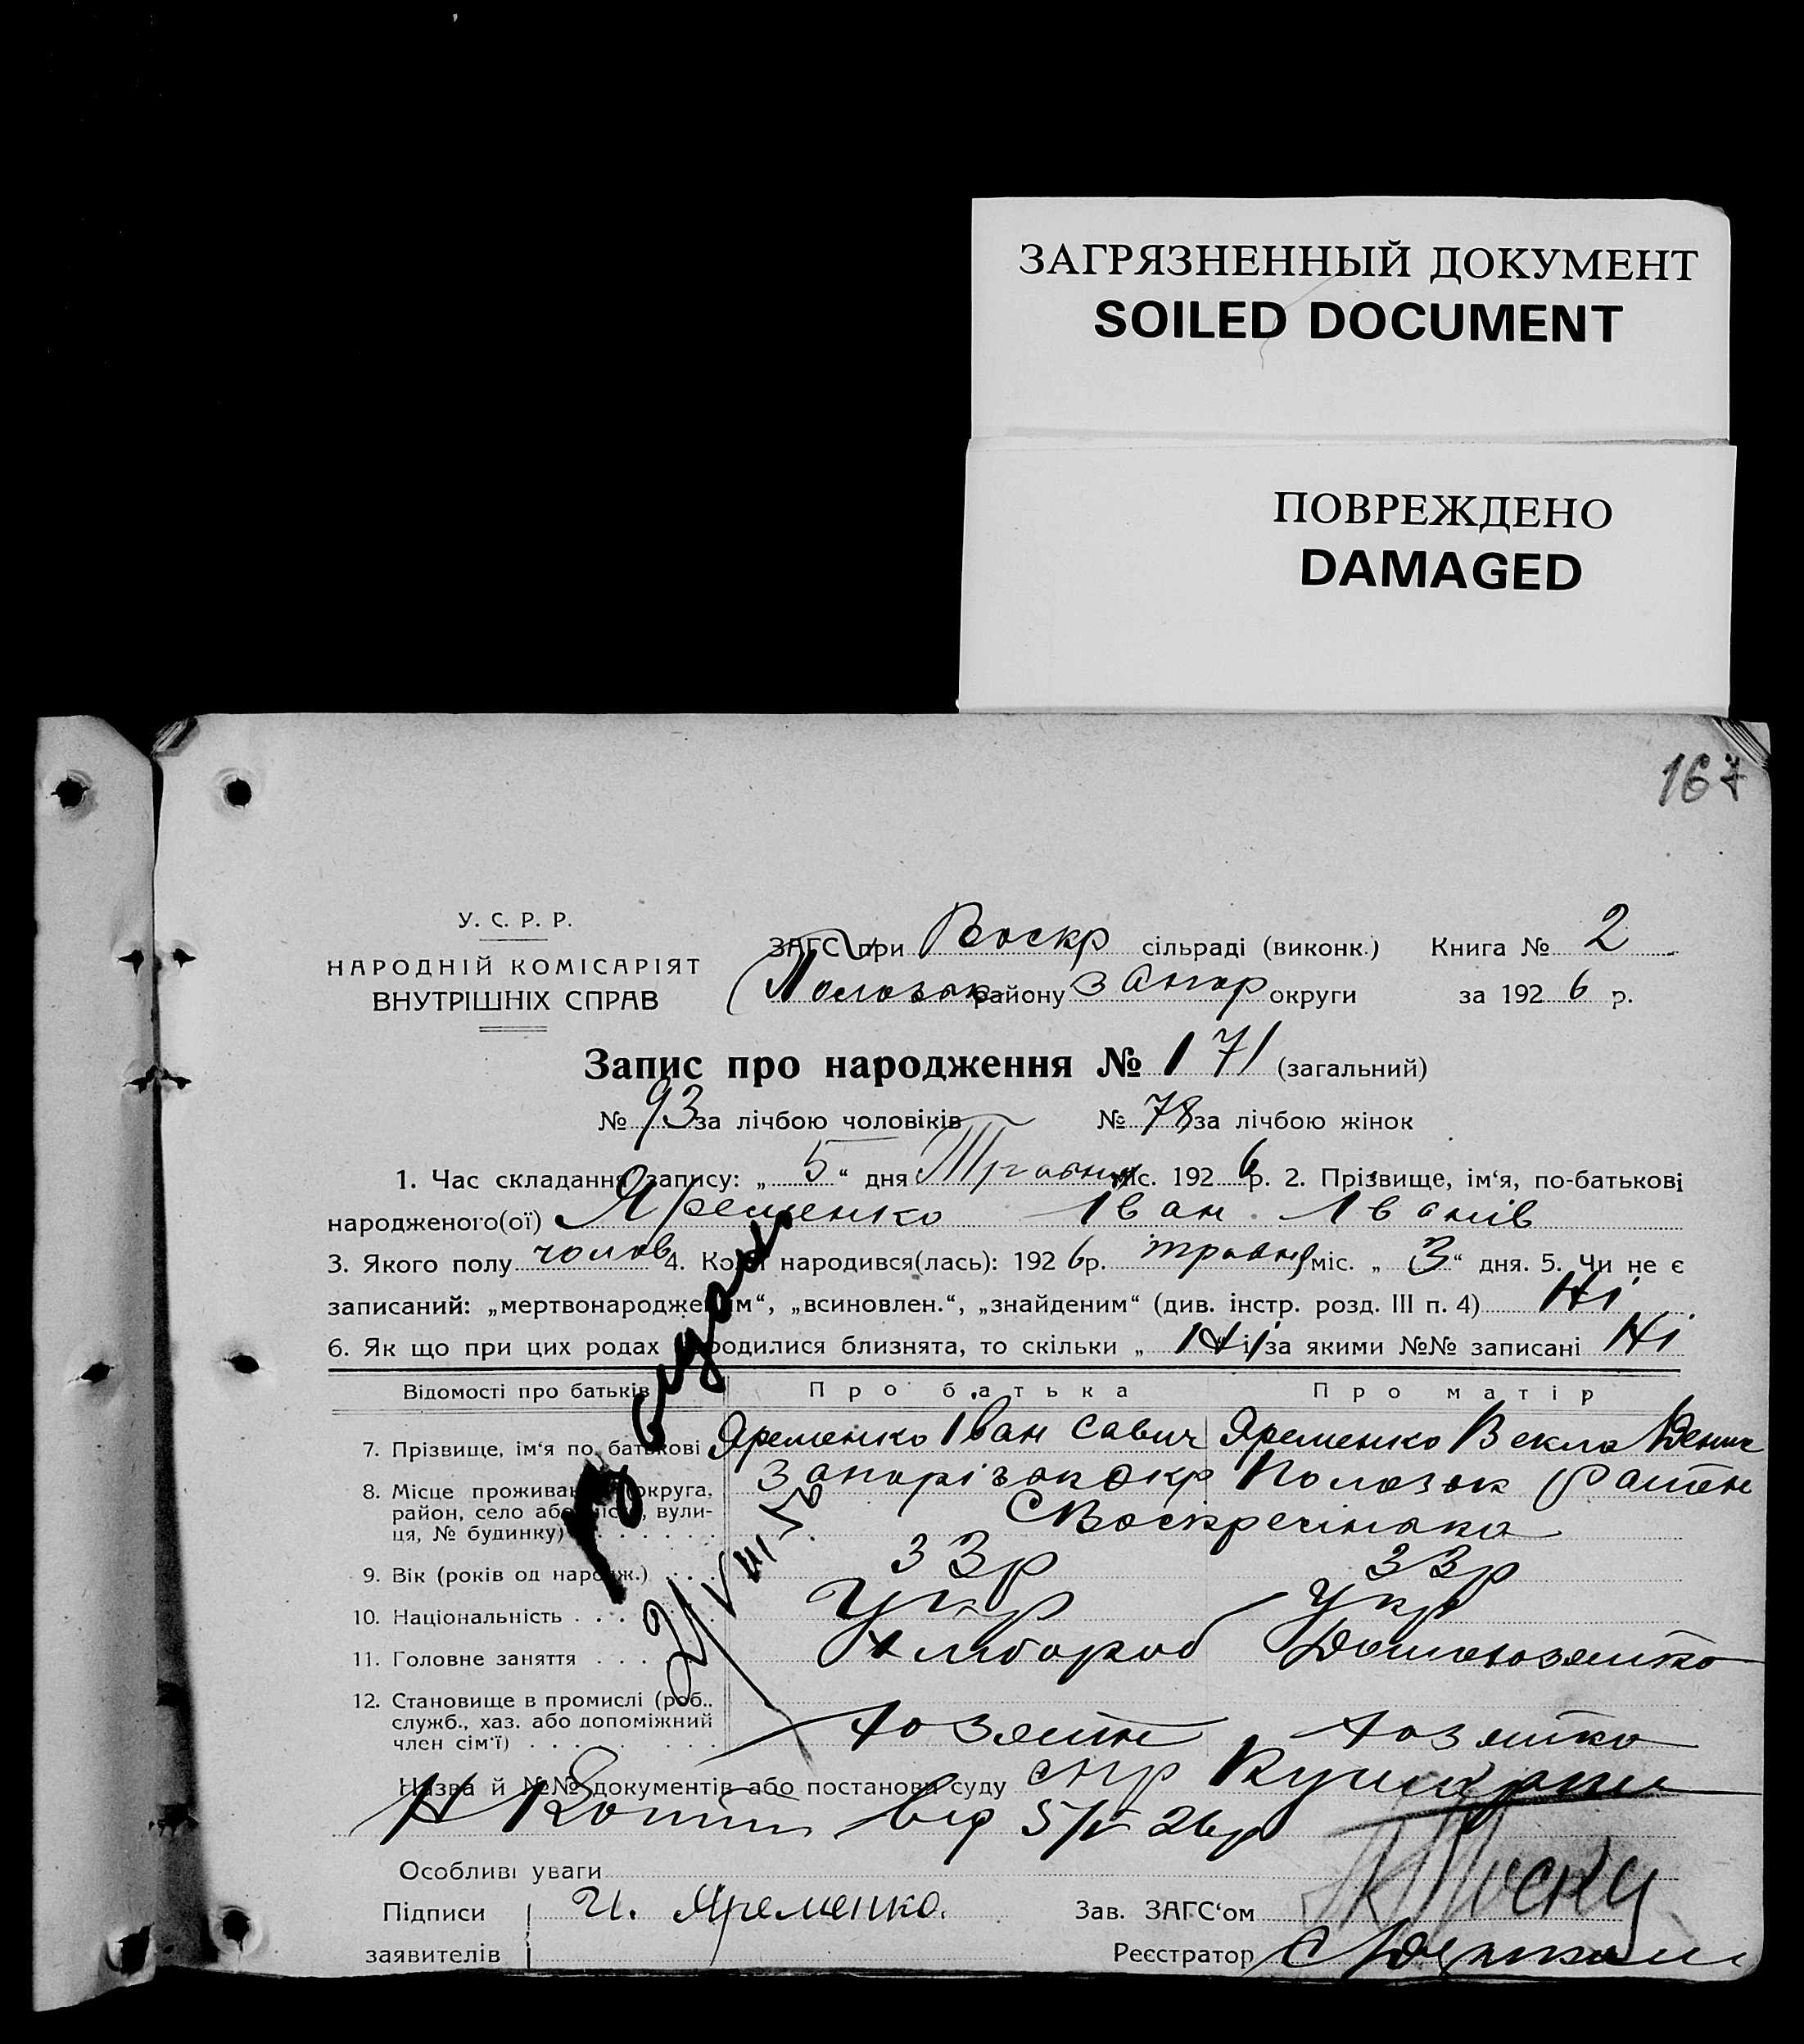 ЗАГРЯЗНЕННЫЙ ДОКУМЕНТ
SOILED DOCUMENT
ПОВРЕЖДЕНО
DAMAGED
167
У. С. Р. Р.
НАРОДНІЙ КОМІСАРІЯТ
ВНУТРІШНІХ СПРАВ
ЗАГС при Воскр сільраді (виконк.) Книга № 2
району Запор округи за 1926 р.
Запис про народження № 171 (загальний)
№ 93 за лічбою чоловіків № 78 за лічбою жінок
1. Час складання запису: „ 5 “ дня Травня міс. 1926 р. 2. Прізвище, ім‘я, по-батькові
народженого(ої) Яременко Іван Іванів
3. Якого полу чолов 4. Коли народився(лась): 1926 р. травня міс. „ 3 “ дня. 5. Чи не є
записаний: „мертвонародженим“, „всиновлен.“, „знайденим“ (див. інстр. розд. III п. 4) Ні
6. Як що при цих родах народилися близнята, то скільки „ Ні “ і за якими №№ записані Ні
Відомості про батьків Про батька Про матір
7. Прізвище, ім‘я по батькові Яременко Іван Савич Яременко Векла
8. Місце проживання (округа, район, село або місто, вулиця, № будинку) Запорізьк Окр
С Воскресінька
9. Вік (років од народж.) 33р 33р
10. Національність Укр Укр
11. Головне заняття Хлібороб Домохозяйка
12. Становище в промислі (роб., служб., хаз. або допоміжний член сім‘ї) хозяин хозяйка
Назва й №№ документів або постанови суду
від 5/V 26р
Особливі уваги
Підписи заявителів И. Яременко.
Зав. ЗАГС‘ом
Реєстратор